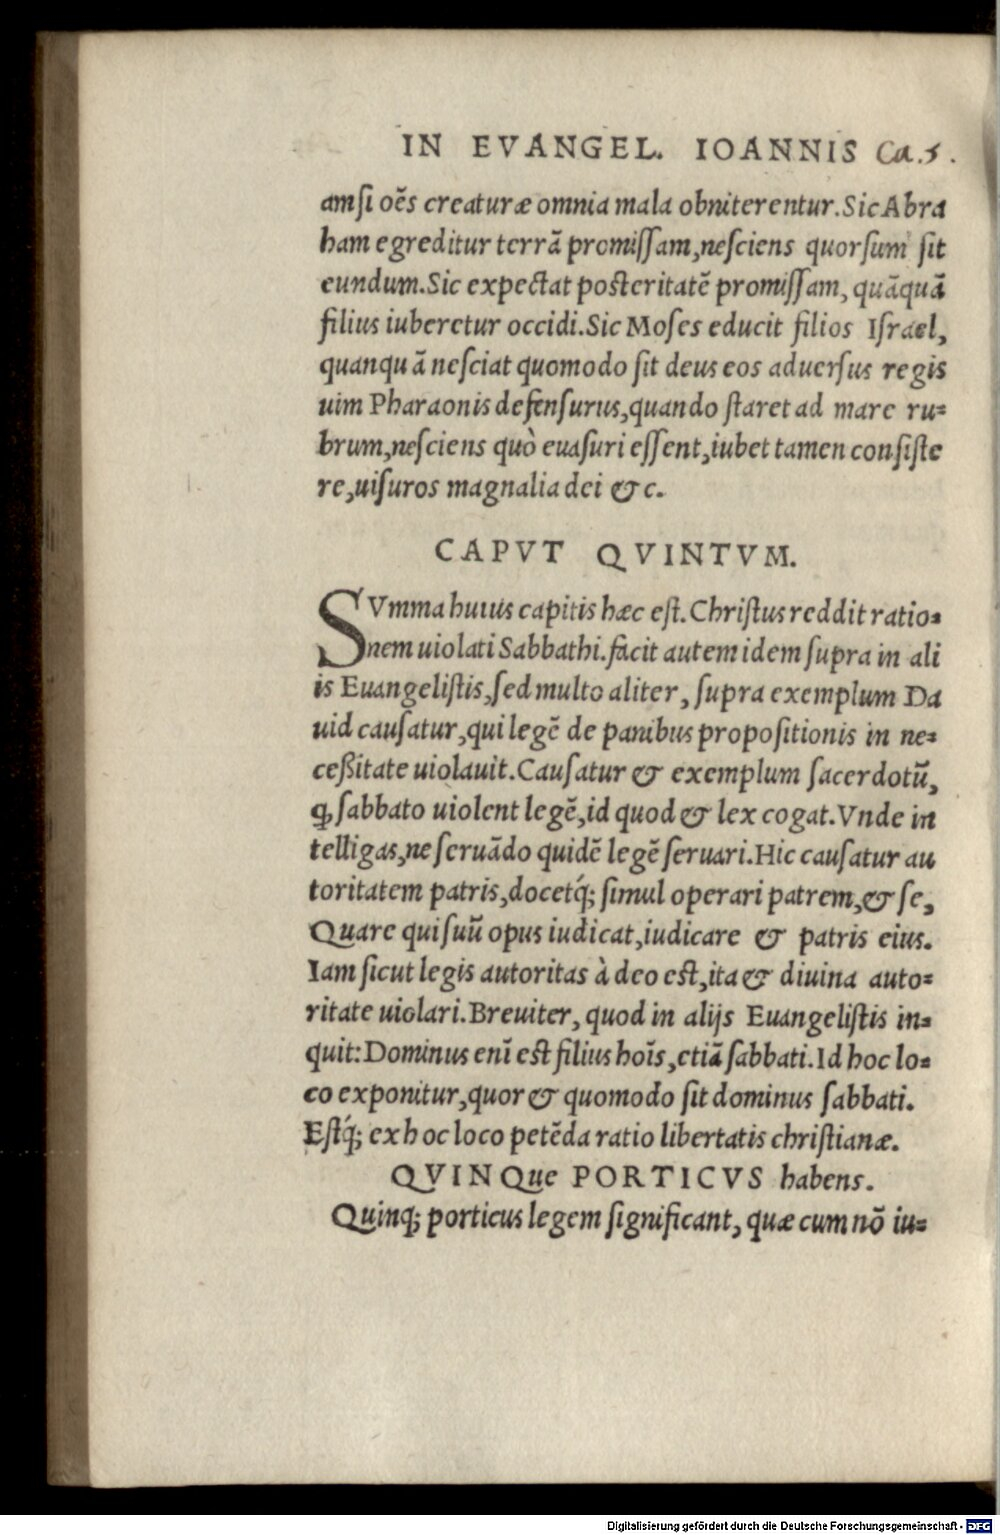 IN EVANGEL. IOANNIS Ca.5.
am ſi oēs creaturæ omnia mala obniterentur. Sic Abra
ham egreditur terrā promiſſam, neſciens quorſum ſit
eundum. Sic expectat poſteritatē promiſſam, quāquā
filius iuberetur occidi. Sic Moſes educit filios Iſrael,
quanquā neſciat quomodo ſit deus eos aduerſus regis
uim Pharaonis defenſurus, quando ſtaret ad mare ru⸗
brum, neſciens quò euaſuri eſſent, iubet tamen conſiſte
re, uiſuros magnalia dei &c.
CAPVT QVINTVM.
SVmma huius capitis hæc eſt. Chriſtus reddit ratio⸗
nem uiolati Sabbathi. facit autem idem ſupra in ali
is Euangeliſtis, ſed multo aliter, ſupra exemplum Da
uid cauſatur, qui legē de panibus propoſitionis in ne⸗
ceßitate uiolauit. Cauſatur & exemplum ſacerdotū,
ꝙ ſabbato uiolent legē, id quod & lex cogat. Vnde in
telligas, ne ſeruādo quidē legē ſeruari. Hic cauſatur au
toritatem patris, docetq́; ſimul operari patrem, & ſe,
Quare qui ſuū opus iudicat, iudicare & patris eius.
Iam ſicut legis autoritas à deo eſt, ita & diuina auto⸗
ritate uiolari. Breuiter, quod in alijs Euangeliſtis in⸗
quit: Dominus enī eſt filius hoīs, etiā ſabbati. Id hoc lo⸗
co exponitur, quor & quomodo ſit dominus ſabbati.
Eſtq́; ex hoc loco petēda ratio libertatis chriſtianæ.
QVINQue PORTICVS habens.
Quinq; porticus legem ſignificant, quæ cum nō iu⸗
Digitalisierung gefördert durch die Deutsche Forschungsgemeinschaft - DFG